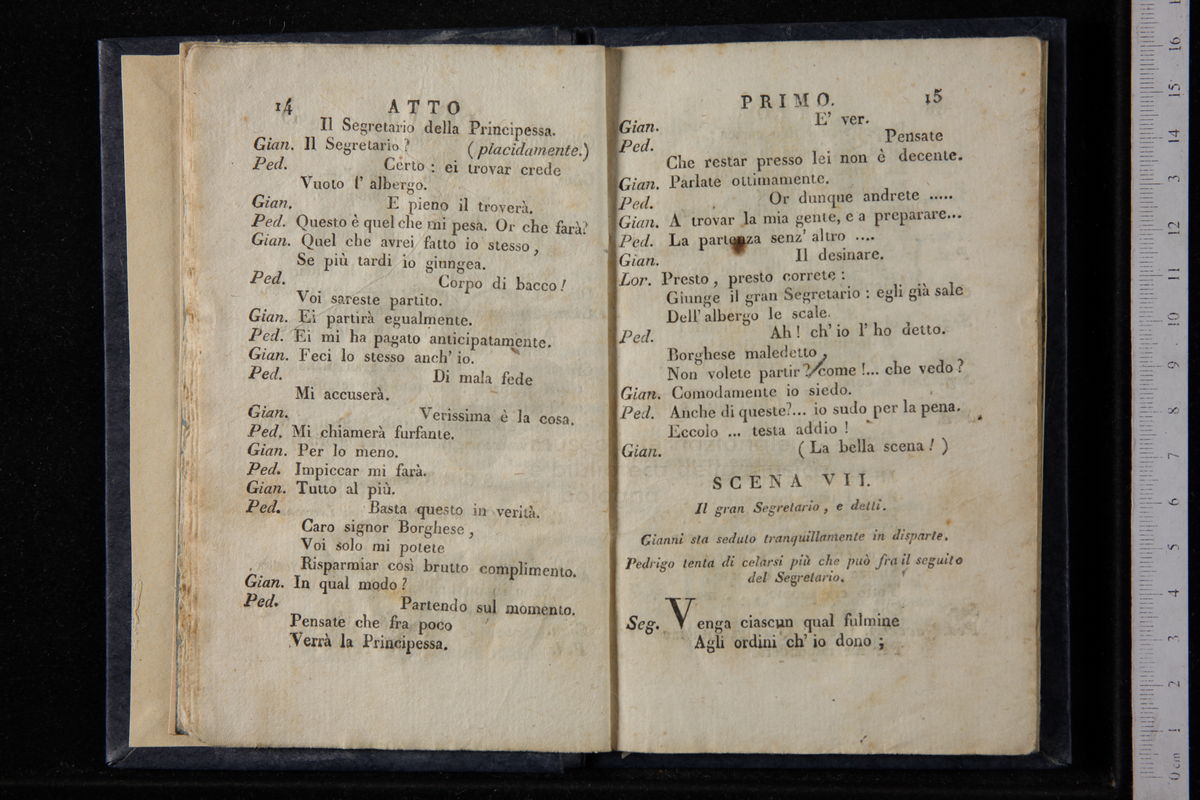 14 ATTO
Il Segretario della Principessa.
Gian. Il Segretario? (placidamente.)
Ped. Certo : ei trovar crede
Vuoto l' albergo.
Gian. E pieno il troverà.
Ped. Questo è quel che mi pesa. Or che farà?
Gian. Quel che avrei fatto io stesso,
Se più tardi io giungea.
Ped. Corpo di bacco!
Voi sareste partito.
Gian. Ei partirà egualmente.
Ped. Ei mi ha pagato anticipatamente.
Gian. Feci lo stesso anch' io.
Ped. Di mala fede
Mi accuserà.
Gian. Verissima è la cosa.
Ped. Mi chiamerà furfante.
Gian. Per lo meno.
Ped. Impiccar mi farà.
Gian. Tutto al più.
Ped. Basta questo in verità.
Caro signor Borghese,
Voi solo mi potete
Risparmiar così brutto complimento.
Gian. In qual modo?
Ped. Partendo sul momento.
Pensate che fra poco
Verrà la Principessa.
PRIMO. 15
Gian. E' ver.
Ped. Pensate
Che restar presso lei non è decente.
Gian. Parlate ottimamente.
Ped. Or dunque andrete .....
Gian. A trovar la mia gente, e a preparare...
Ped. La partenza senz' altro ....
Gian. Il desinare.
Lor. Presto, presto correte :
Giunge il gran Segretario : egli già sale
Dell' albergo le scale.
Ped. Ah! ch' io l' ho detto.
Borghese maledetto,
Non volete partir? come!... che vedo?
Gian. Comodamente io siedo.
Ped. Anche di queste?... io sudo per la pena.
Eccolo ... testa addio!
Gian. (La bella scena!)
SCENA VII.
Il gran Segretario, e detti.
Gianni sta seduto tranquillamente in disparte.
Pedrigo tenta di celarsi più che può fra il seguito
del Segretario.
Seg. Venga ciascun qual fulmine
Agli ordini ch' io dono ;
0 cm 1 2 3 4 5 6 7 8 9 10 11 12 13 14 15 16